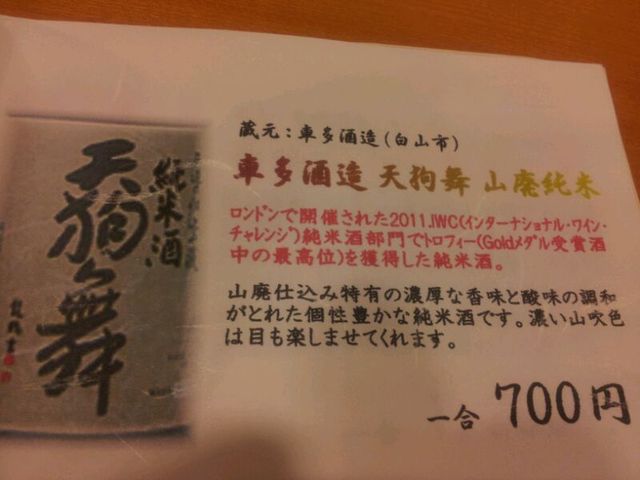 天狗舞
純米酒
蔵元:車多酒造(白山市)
車多酒造 天狗舞 山廃純米
ロンドンで開催された2011.IWC(インターナショナル・ワイン・
チャレンジ)純米酒部門でトロフィー(Goldメダル受賞酒
中の最高位)を獲得した純米酒。
山廃仕込み特有の濃厚な香味と酸味の調和
がとれた個性豊かな純米酒です。濃い山吹色
は目も楽しませてくれます。
一合 700円